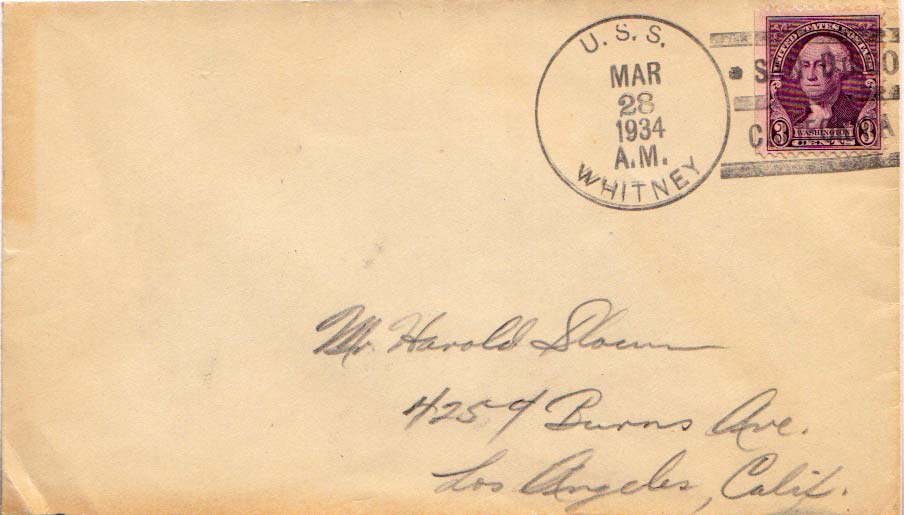 U. S. S.
MAR
28
1934
A.M.
WHITNEY
UNITED STATES POSTAGE
3 WASHINGTON 3
CENTS
Mr. Harold
4259 Burns Ave.
Los Angeles, Calif.